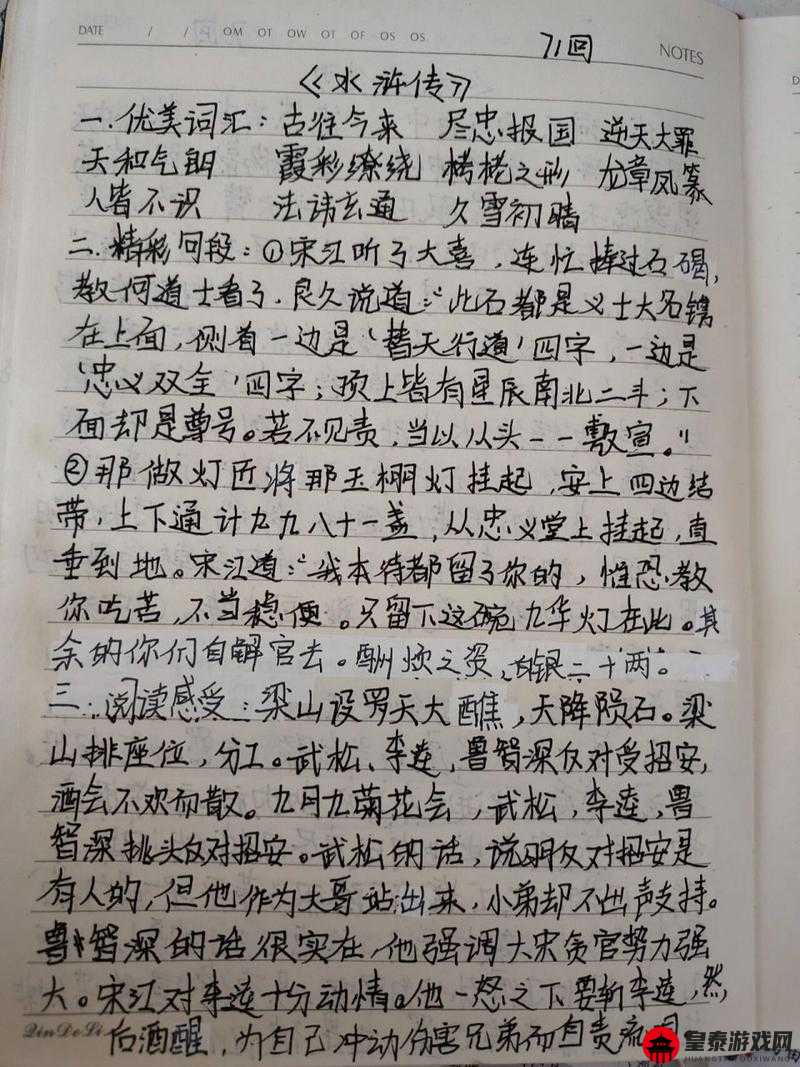 DATE / / OM OT OW OT OF OS OS.
71回
NOTES
《水浒传》
一.优美词汇：古往今来 尽忠报国 逆天大罪
天和气朗 霞彩缭绕 栲栳之形 龙章凤篆
人皆不识 法讳玄通 久雪初晴
二.精彩句段：①宋江听了大喜，连忙捧过石碣，
教何道士看了.良久说道："此石都是义士大名镌
在上面，侧首一边是'替天行道'四字，一边是
'忠义双全'四字；顶上皆有星辰南北二斗；下
面却是尊号。若不见责，当以从头一一敷宣。"
②那做灯匠将那玉棚灯挂起，安上四边结
带，上下通计九九八十一盏，从忠义堂上挂起，直
垂到地。宋江道："我本待都留了你的，惟恐教
你吃苦，不当稳便。只留下这碗九华灯在此。其
余的你们自解官去。酬烦之资，白银二十两。"
三.阅读感受：梁山设罗天大醮，天降陨石。梁
山排座位，分工。武松、李逵，鲁智深反对受招安，
酒会不欢而散。九月九菊花会，武松，李逵，鲁
智深挑头反对招安。武松的话，说明反对招安是
有人的，但他作为大哥站出来，小弟却不出声支持。
鲁智深的话很实在，他强调大宋贪官势力强
大。宋江对李逵十分动情。他一怒之下要斩李逵，然
后酒醒，为自己冲动伤害兄弟而自责流
QinDeLi
皇泰游戏网